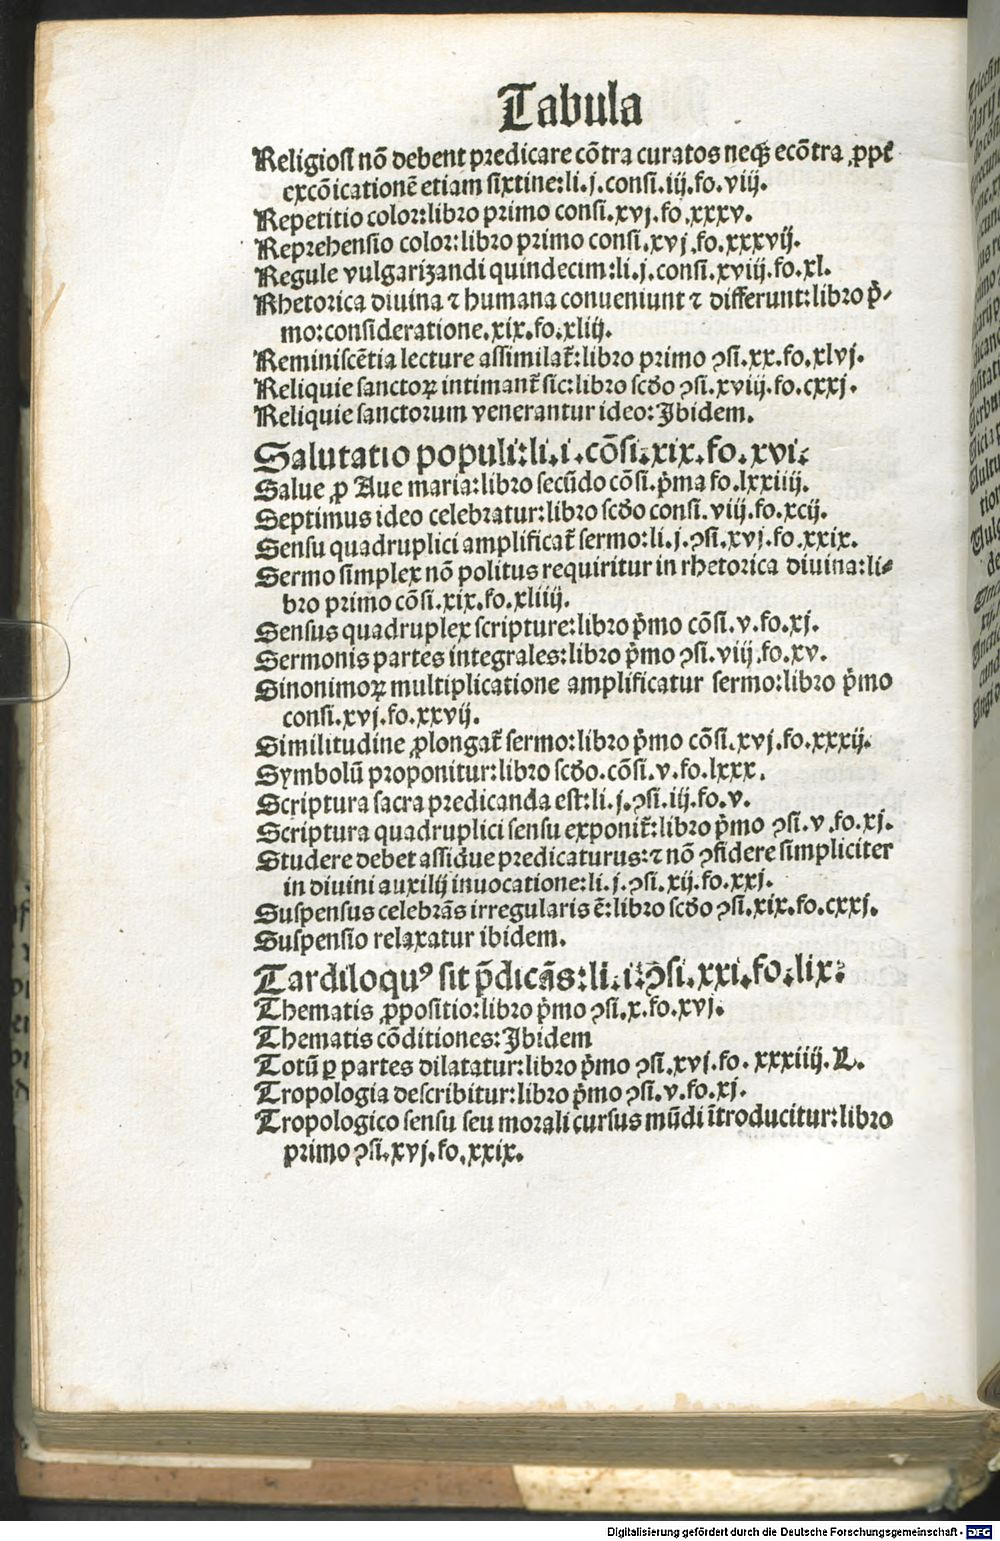 Tabula
Religiosi nō debent predicare cōtra curatos neqꝫ ecōtra ꝓpt̄
excōicationē etiam sixtine:li.j.consi.iij.fo.viij.
Repetitio color:libro primo consi.xvj.fo.xxxv.
Reprehensio color:libro primo consi.xvj.fo.xxxvij.
Regule vulgarizandi quindecim:li.j.consi.xviij.fo.xl.
Rhetorica diuina ⁊ humana conueniunt ⁊ differunt:libro p̄/
mo:consideratione.xix.fo.xliij.
Reminiscētia lecture assimilat̄:libro primo ↄsi.xx.fo.xlvj.
Reliquie sanctoꝝ intimant̄ sic:libro scd̄o ↄsi.xviij.fo.cxxj.
Reliquie sanctorum venerantur ideo:Jbidem.
Salutatio populi:li.i.cōsi.xix.fo.xvi:
Salue ꝓ Aue maria:libro secūdo cōsi.p̄ma fo.lxxiiij.
Septimus ideo celebratur:libro scd̄o consi.viij.fo.xcij.
Sensu quadruplici amplificat̄ sermo:li.j.ↄsi.xvj.fo.xxix.
Sermo simplex nō politus requiritur in rhetorica diuina:li⸗
bro primo cōsi.xix.fo.xliiij.
Sensus quadruplex scripture:libro p̄mo cōsi.v.fo.xj.
Sermonis partes integrales:libro p̄mo ↄsi.viij.fo.xv.
Sinonimoꝝ multiplicatione amplificatur sermo:libro p̄mo
consi.xvj.fo.xxvij.
Similitudine ꝓlongat̄ sermo:libro p̄mo cōsi.xvj.fo.xxxij.
Symbolū proponitur:libro scd̄o.cōsi.v.fo.lxxx.
Scriptura sacra predicanda est:li.j.ↄsi.iij.fo.v.
Scriptura quadruplici sensu exponit̄:libro p̄mo ↄsi.v.fo.xj.
Studere debet assidue predicaturus:⁊ nō ↄfidere simpliciter
in diuini auxilij inuocatione:li.j.ↄsi.xij.fo.xxj.
Suspensus celebrās irregularis ē:libro scd̄o ↄsi.xix.fo.cxxj.
Suspensio relaxatur ibidem.
Tardiloquꝰ sit p̄dicās:li.i:ↄsi.xxi.fo.lix:
Thematis ꝓpositio:libro p̄mo ↄsi.x.fo.xvj.
Thematis cōditiones:Jbidem
Totū ꝑ partes dilatatur:libro p̄mo ↄsi.xvj.fo.xxxiiij.L.
Tropologia describitur:libro p̄mo ↄsi.v.fo.xj.
Tropologico sensu seu morali cursus mūdi ītroducitur:libro
primo ↄsi.xvj.fo.xxix.
Digitalisierung gefördert durch die Deutsche Forschungsgemeinschaft - DFG